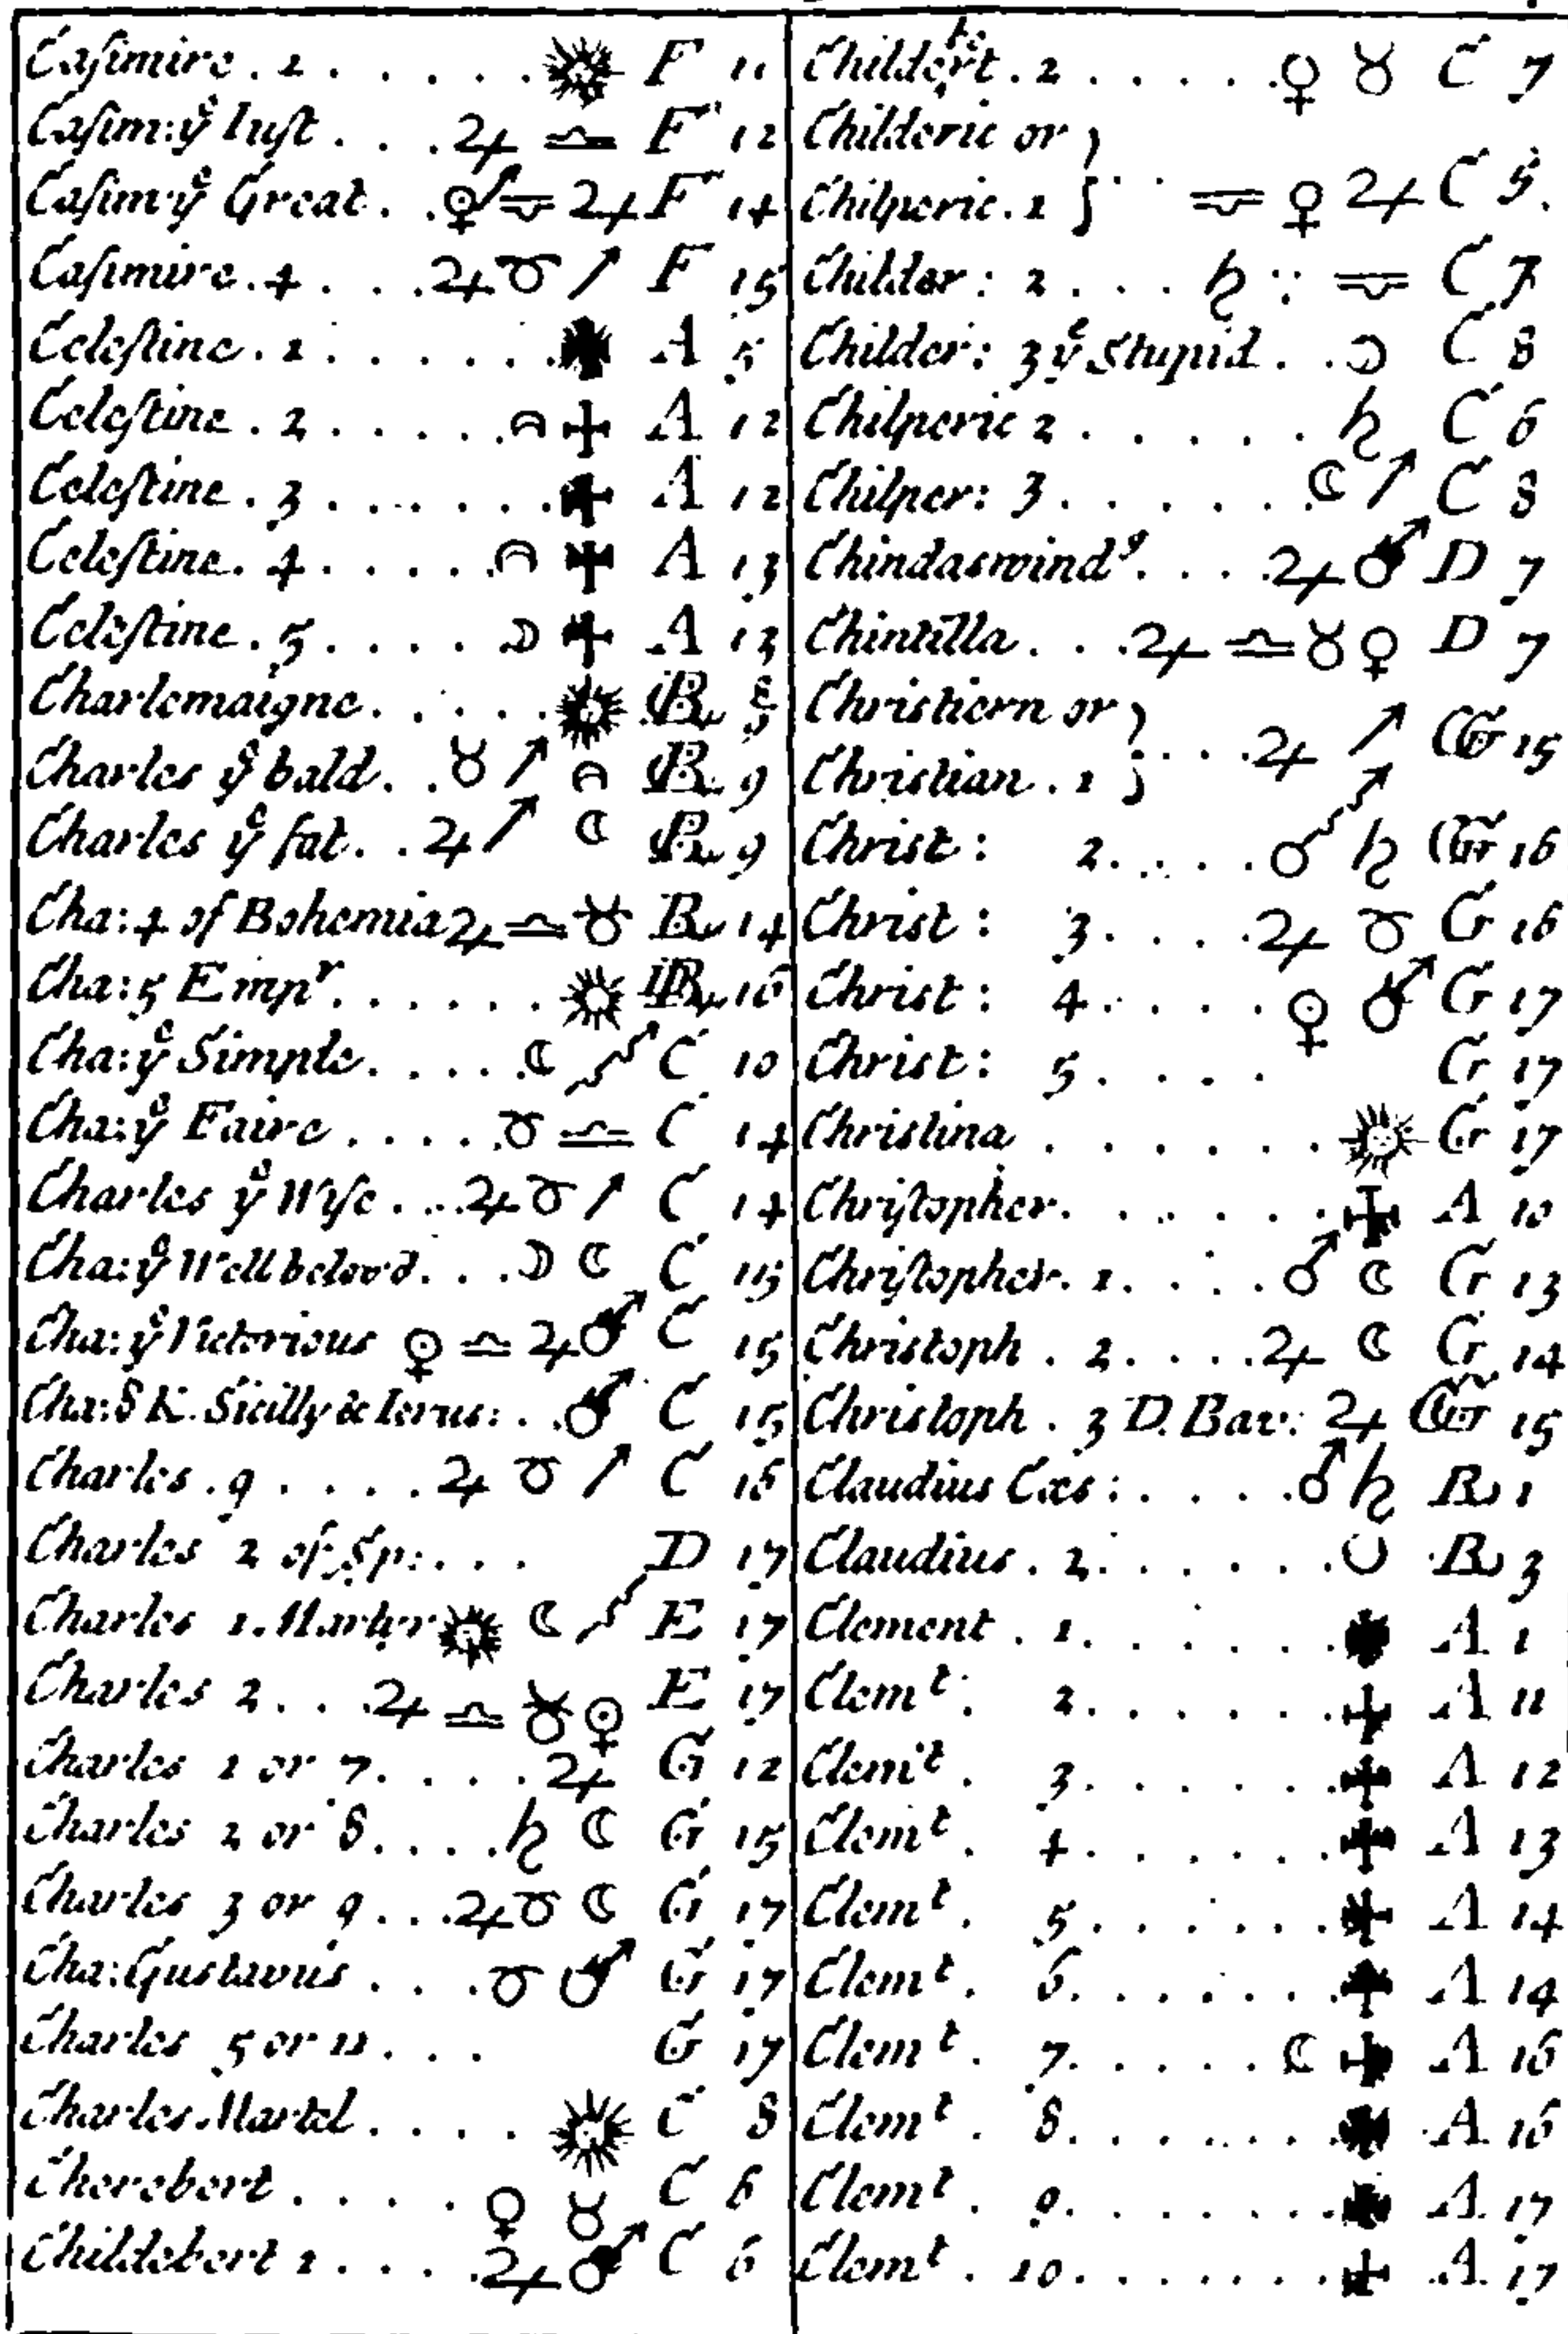 Casimire . 1 . . . . . F 11
Casim: yͤ Iust . . . ♃ ♎ F 12
Casim: yͤ Great . . ♃ F 14
Casimire . 4 . . . ♃ ♉ ↗ F 15
Celestine . 1 . . . . . . A 5
Celestine . 2 . . . . . ✠ A 12
Celestine . 3 . . . . . . . ✠ A 12
Celestine . 4 . . . . . ✠ A 13
Celestine . 5 . . . . ☽ ✠ A 13
Charlemaigne . . . . . ☉ B 8
Charles yͤ bald . . ♉ ↗ B 9
Charles yͤ fat . . ♃ ↗ ☾ B 9
Cha: 4 of Bohemia ♃ ♎ ♉ B 14
Cha: 5 Empʳ . . . . . . ☉ B 16
Cha: yͤ Simple . . . . . ☾ C 10
Cha: yͤ Faire . . . . . ♉ ♎ C 14
Charles yͤ Wise . . . ♃ ♉ ↗ C 14
Cha: yͤ Wellbelov'd . . . ☽ ☾ C 15
Cha: yͤ Victorious ♀ ♎ ♃ ♂ C 15
Cha: 8 K. Sicilly & Ierus: . . ♂ C 15
Charles . 9 . . . . ♃ ♉ ↗ C 16
Charles 2 of Sp: . . . D 17
Charles 1. Martyr ☉ ☾ E 17
Charles 2 . . . ♃ ♎ ♉ ♀ E 17
Charles 1 or 7 . . . . ♃ G 12
Charles 2 or 8 . . . . ♄ ☾ G 15
Charles 3 or 9 . . . ♃ ♉ ☾ G 17
Cha: Gustavus . . . ♉ ♂ G 17
Charles 5 or 11 . . . G 17
Charles Martel . . . . ☉ C 8
Cherebert . . . . ♀ ♉ C 6
Childebert 1 . . . . ♃ ♂ C 6
Childebert . 2 . . . . . ♀ ♉ C 7
Childeric or }
Chilperic . 1 } . . ♀ ♃ C 5.
Childer: 2 . . . ♄ : C 7
Childer: 3 yͤ Stupid . . ☽ C 8
Chilperic 2 . . . . . ♄ C 6
Chilper: 3 . . . . . ☾ ↗ C 8
Chindaswindꝰ . . . ♃ ♂ D 7
Chintilla . . . ♃ ♎ ♉ ♀ D 7
Christiern or }
Christian . 1 } . . . ♃ ↗ G 15
Christ: 2 . . . . ♂ ♄ G 16
Christ: 3 . . . . ♃ ♉ G 16
Christ: 4 . . . . ♀ ♂ G 17
Christ: 5 . . . . G 17
Christina . . . . . . ☉ G 17
Christopher . . . . . . ✠ A 10
Christopher . 1 . . . . ♂ ☾ G 13
Christoph . 2 . . . . ♃ ☾ G 14
Christoph . 3 D. Bav: ♃ G 15
Claudius Cæs: . . . . ♂ ♄ B 1
Claudius . 2 . . . . . . B 3
Clement . 1 . . . . . . ✠ A 1
Clemᵗ . 2 . . . . . . ✠ A 11
Clemᵗ . 3 . . . . . . ✠ A 12
Clemᵗ . 4 . . . . . . ✠ A 13
Clemᵗ . 5 . . . . . . ✠ A 14
Clemᵗ . 6 . . . . . . ✠ A 14
Clemᵗ . 7 . . . . . ☾ ✠ A 16
Clemᵗ . 8 . . . . . . ✠ A 16
Clemᵗ . 9 . . . . . . ✠ A 17
Clemᵗ . 10 . . . . . . ✠ A 17